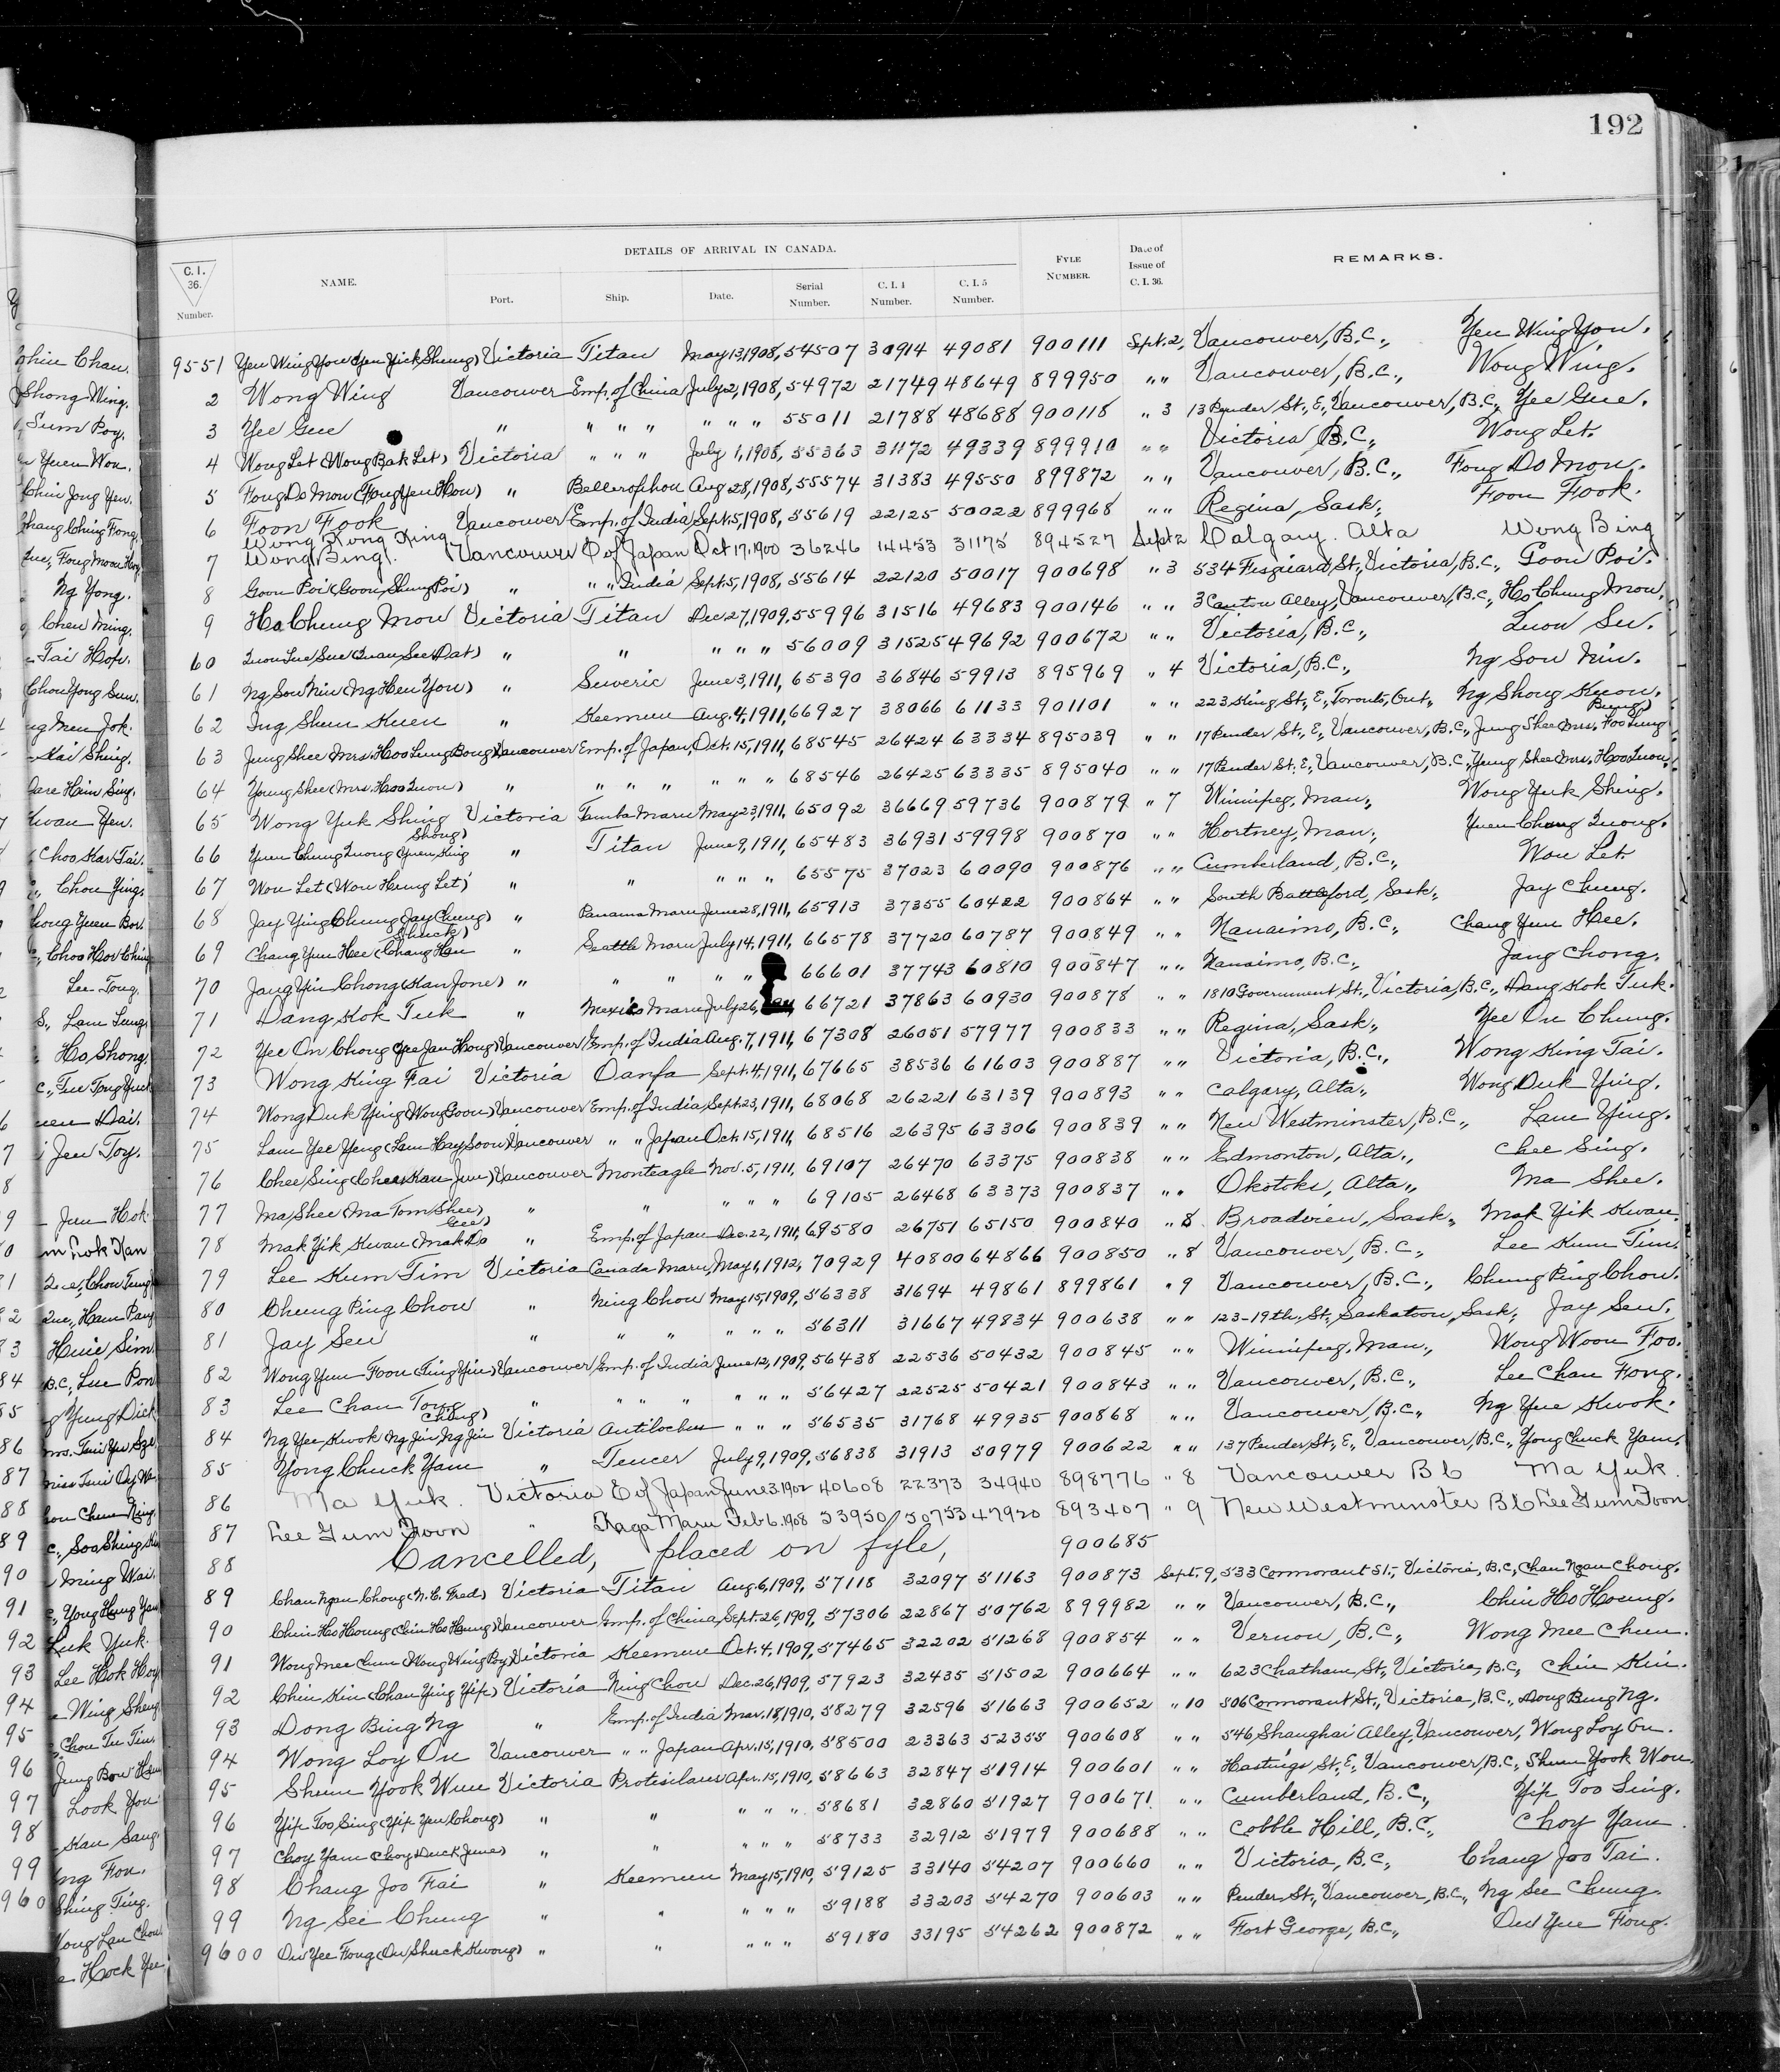 192
DETAILS OF ARRIVAL IN CANADA.
C. I. 36. Number. NAME. Port. Ship. Date. Serial Number. C. I. 4 Number. C. I. 5 Number. FYLE NUMBER. Date of Issue of C. I. 36. REMARKS.
9551 Yen Wing You (Yen Yick Sheung) Victoria Titan May 13, 1908, 54507 30914 49081 900111 Sept. 2, Vancouver, B.C., Yen Wing You.
2 Wong Wing Vancouver Emp. of China July 2, 1908, 54972 21749 48649 899950 " " Vancouver, B.C., Wong Wing.
3 Yee Gue " " " " " " " 55011 21788 48688 900118 " 3 13 Pender St., E., Vancouver, B.C., Yee Gue.
4 Wong Let (Wong Bak Let) Victoria " " " July 1, 1908, 55363 31172 49339 899910 " " Victoria B.C., Wong Let.
5 Fong Do Mon (Fong Yen Hon) " Bellerophon Aug 28, 1908, 55574 31383 49550 899872 " " Vancouver, B.C., Fong Do Mon.
6 Foon Fook Vancouver Emp. of India Sept. 5, 1908, 55619 22125 50022 899968 " " Regina, Sask., Foon Fook.
Wong Kong King
7 Wong Bing. Vancouver E of Japan Oct 17, 1900 36246 14453 31175 894527 Sept 2 Calgary. Alta Wong Bing
8 Goon Poi (Goon Shung Poi) " " India Sept. 5, 1908, 55614 22120 50017 900698 " 3 534 Fisguard, St., Victoria, B.C., Goon Poi.
9 Ho Chung Mow Victoria Titan Dec 27, 1909, 55996 31516 49683 900146 " " 3 Canton Alley, Vancouver, B.C., Ho Chung Mow.
60 Quon Sue Sue (Quan See Dat) " " " " " 56009 31525 49692 900672 " " Victoria, B.C., Quon Su.
61 Ng Sou Nin (Ng Hen You) " Suveric June 3, 1911, 65390 36846 59913 895969 " 4 Victoria, B.C., Ng Sou Nin.
62 Ing Shun Kuen " Keemun Aug. 4, 1911, 66927 38066 61133 901101 " " 223 King St., E., Toronto, Ont., Ng Shong Kuon.
63 Jung Shee Mrs. Hoo Lung Bong Vancouver Emp. of Japan, Oct. 15, 1911, 68545 26424 63334 895039 " " 17 Pender St., E., Vancouver, B.C., Jung Shee Mrs. Hoo Lung Bung)
64 Young Shee (Mrs. Hoo Quon) " " " " " " " 68546 26425 63335 895040 " " 17 Pender St. E., Vancouver, B.C., Yeung Shee Mrs. Hoo Quon,
65 Wong Yuk Shing Victoria Tamba Maru May 23, 1911, 65092 36669 59736 900879 " 7 Winnipeg, Man., Wong Yuk Shing.
66 Yuen Chung Quong (Yuen King Shong) " Titan June 9, 1911, 65483 36931 59998 900870 " " Hortney, Man., Yuen Chung Quong.
67 Wou Let (Wou Hung Let) " " " " " 65575 37023 60090 900876 " " Cumberland, B.C., Wou Let.
68 Jay Ying Chung (Jay Chung) " Panama Maru June 28, 1911, 65913 37355 60422 900864 " " South Battleford, Sask., Jay Chung.
69 Chang Yun Hee (Chang Han Shuck) " Seattle Maru July 14, 1911, 66578 37720 60787 900849 " " Nanaimo, B.C., Chang Yun Hee.
70 Jang Yin Chong (Kan Jone) " " " " " 66601 37743 60810 900847 " " Nanaimo, B.C., Jang Chong.
71 Dang Kok Tuk " Mexico Maru July 26, 66721 37863 60930 900878 " " 1810 Government St., Victoria, B.C., Dang Kok Tuk.
72 Yee On Chong (Yee Jan Hong) Vancouver Emp. of India Aug. 7, 1911, 67308 26051 57977 900833 " " Regina, Sask., Yee On Chung.
73 Wong King Fai Victoria Oanfa Sept. 4, 1911, 67665 38536 61603 900887 " " Victoria, B.C., Wong King Tai.
74 Wong Duk Ying (Wong Goon) Vancouver Emp. of India, Sept. 23, 1911, 68068 26221 63139 900893 " " Calgary, Alta., Wong Duk Ying.
75 Lam Yee Yeng (Lam Hay Soon) Vancouver " " Japan Oct. 15, 1911, 68516 26395 63306 900839 " " New Westminster, B.C., Lam Ying.
76 Chee Sing (Chee Kan Jun) Vancouver Monteagle Nov. 5, 1911, 69107 26470 63375 900838 " " Edmonton, Alta., Chee Sing.
77 Ma Shee (Ma Tom Shee) " " " " " 69105 26468 63373 900837 " " Okotoks, Alta., Ma Shee.
78 Mak Yik Kwan (Mak Do Gee) " Emp. of Japan Dec. 22, 1911, 69580 26751 65150 900840 " 8 Broadview, Sask., Mak Yik Kwan.
79 Lee Kum Tim Victoria Canada Maru, May 1, 1912, 70929 40800 64866 900850 " 8 Vancouver, B.C., Lee Kum Tim.
80 Chung Ping Chow " Ning Chow May 15, 1909, 56338 31694 49861 899861 " 9 Vancouver, B.C., Chung Ping Chow.
81 Jay Sen " " " " " " 56311 31667 49834 900638 " " 123-19th, St., Saskatoon, Sask., Jay Sen.
82 Wong Yun Foon (Ting Yin) Vancouver Emp. of India June 12, 1909, 56438 22536 50432 900845 " " Winnipeg, Man., Wong Woon Foo.
83 Lee Chan Tong " " " " " " " 56427 22525 50421 900843 " " Vancouver, B.C., Lee Chan Fong.
84 Ng Yee Kwok Ng Jin, Ng Jin Chong) Victoria Antilochus " " " 56535 31768 49935 900868 " " Vancouver, B.C., Ng Yue Kwok.
85 Yong Chuck Yam " Teucer July 9, 1909, 56838 31913 50979 900622 " " 137 Pender, St., E., Vancouver, B.C., Yong Chuck Yam.
86 Ma Yuk. Victoria E of Japan June 3. 1902 40608 22373 34940 898776 " 8 Vancouver B C Ma Yuk.
87 Lee Gum Foon " Kaga Maru Feb 6. 1908 53950 30753 47920 893407 " 9 New Westminster B C Lee Gum Foon
88 Cancelled, placed on fyle, 900685
89 Chan Ngan Chong (N. C. Fred) Victoria Titan Aug. 6, 1909, 57118 32097 51163 900873 Sept. 9, 533 Cormorant St., Victoria, B.C., Chan Ngan Chong.
90 Chin Ho Houng (Chin Ho Hung) Vancouver Emp. of China, Sept. 26, 1909, 57306 22867 50762 899982 " " Vancouver, B.C., Chin Ho Houng.
91 Wong Mee Chun (Wong Wing Poy) Victoria Keemun Oct. 4, 1909, 57465 32202 51268 900854 " " Vernon, B.C., Wong Mee Chun.
92 Chin Kin (Chan Ying Yip) Victoria Ning Chow Dec. 26, 1909, 57923 32435 51502 900664 " " 623 Chatham, St., Victoria, B.C., Chin Kin.
93 Dong Bing Ng " Emp. of India Mar. 18, 1910, 58279 32596 51663 900652 " 10 506 Cormorant St., Victoria, B.C., Dong Bing Ng.
94 Wong Loy On Vancouver " " Japan Apr. 15, 1910, 58500 23363 52355 900608 " " 546 Shanghai Alley, Vancouver, Wong Loy On.
95 Shum Yook Wun Victoria Protisilaus Apr. 15, 1910, 58663 32847 51914 900601 " " Hastings St., E., Vancouver, B.C., Shum Yook Won.
96 Yip Too Sing (Yip Yen Chong) " " " " " 58681 32860 51927 900671 " " Cumberland, B.C., Yip Too Sing.
97 Choy Yam (Choy Duck June) " " " " " 58733 32912 51979 900688 " " Cobble Hill, B.C., Choy Yam.
98 Chang Joo Fai " Keemun May 15, 1910, 59125 33140 54207 900660 " " Victoria, B.C., Chang Joo Tai.
99 Ng See Chung " " " " " 59188 33203 54270 900603 " " Pender, St., Vancouver, B.C., Ng See Chung.
9600 Ow Yee Fong (Ow Shuck Kwong) " " " " " 59180 33195 54262 900872 " " Fort George, B.C., Ow Yue Fong.